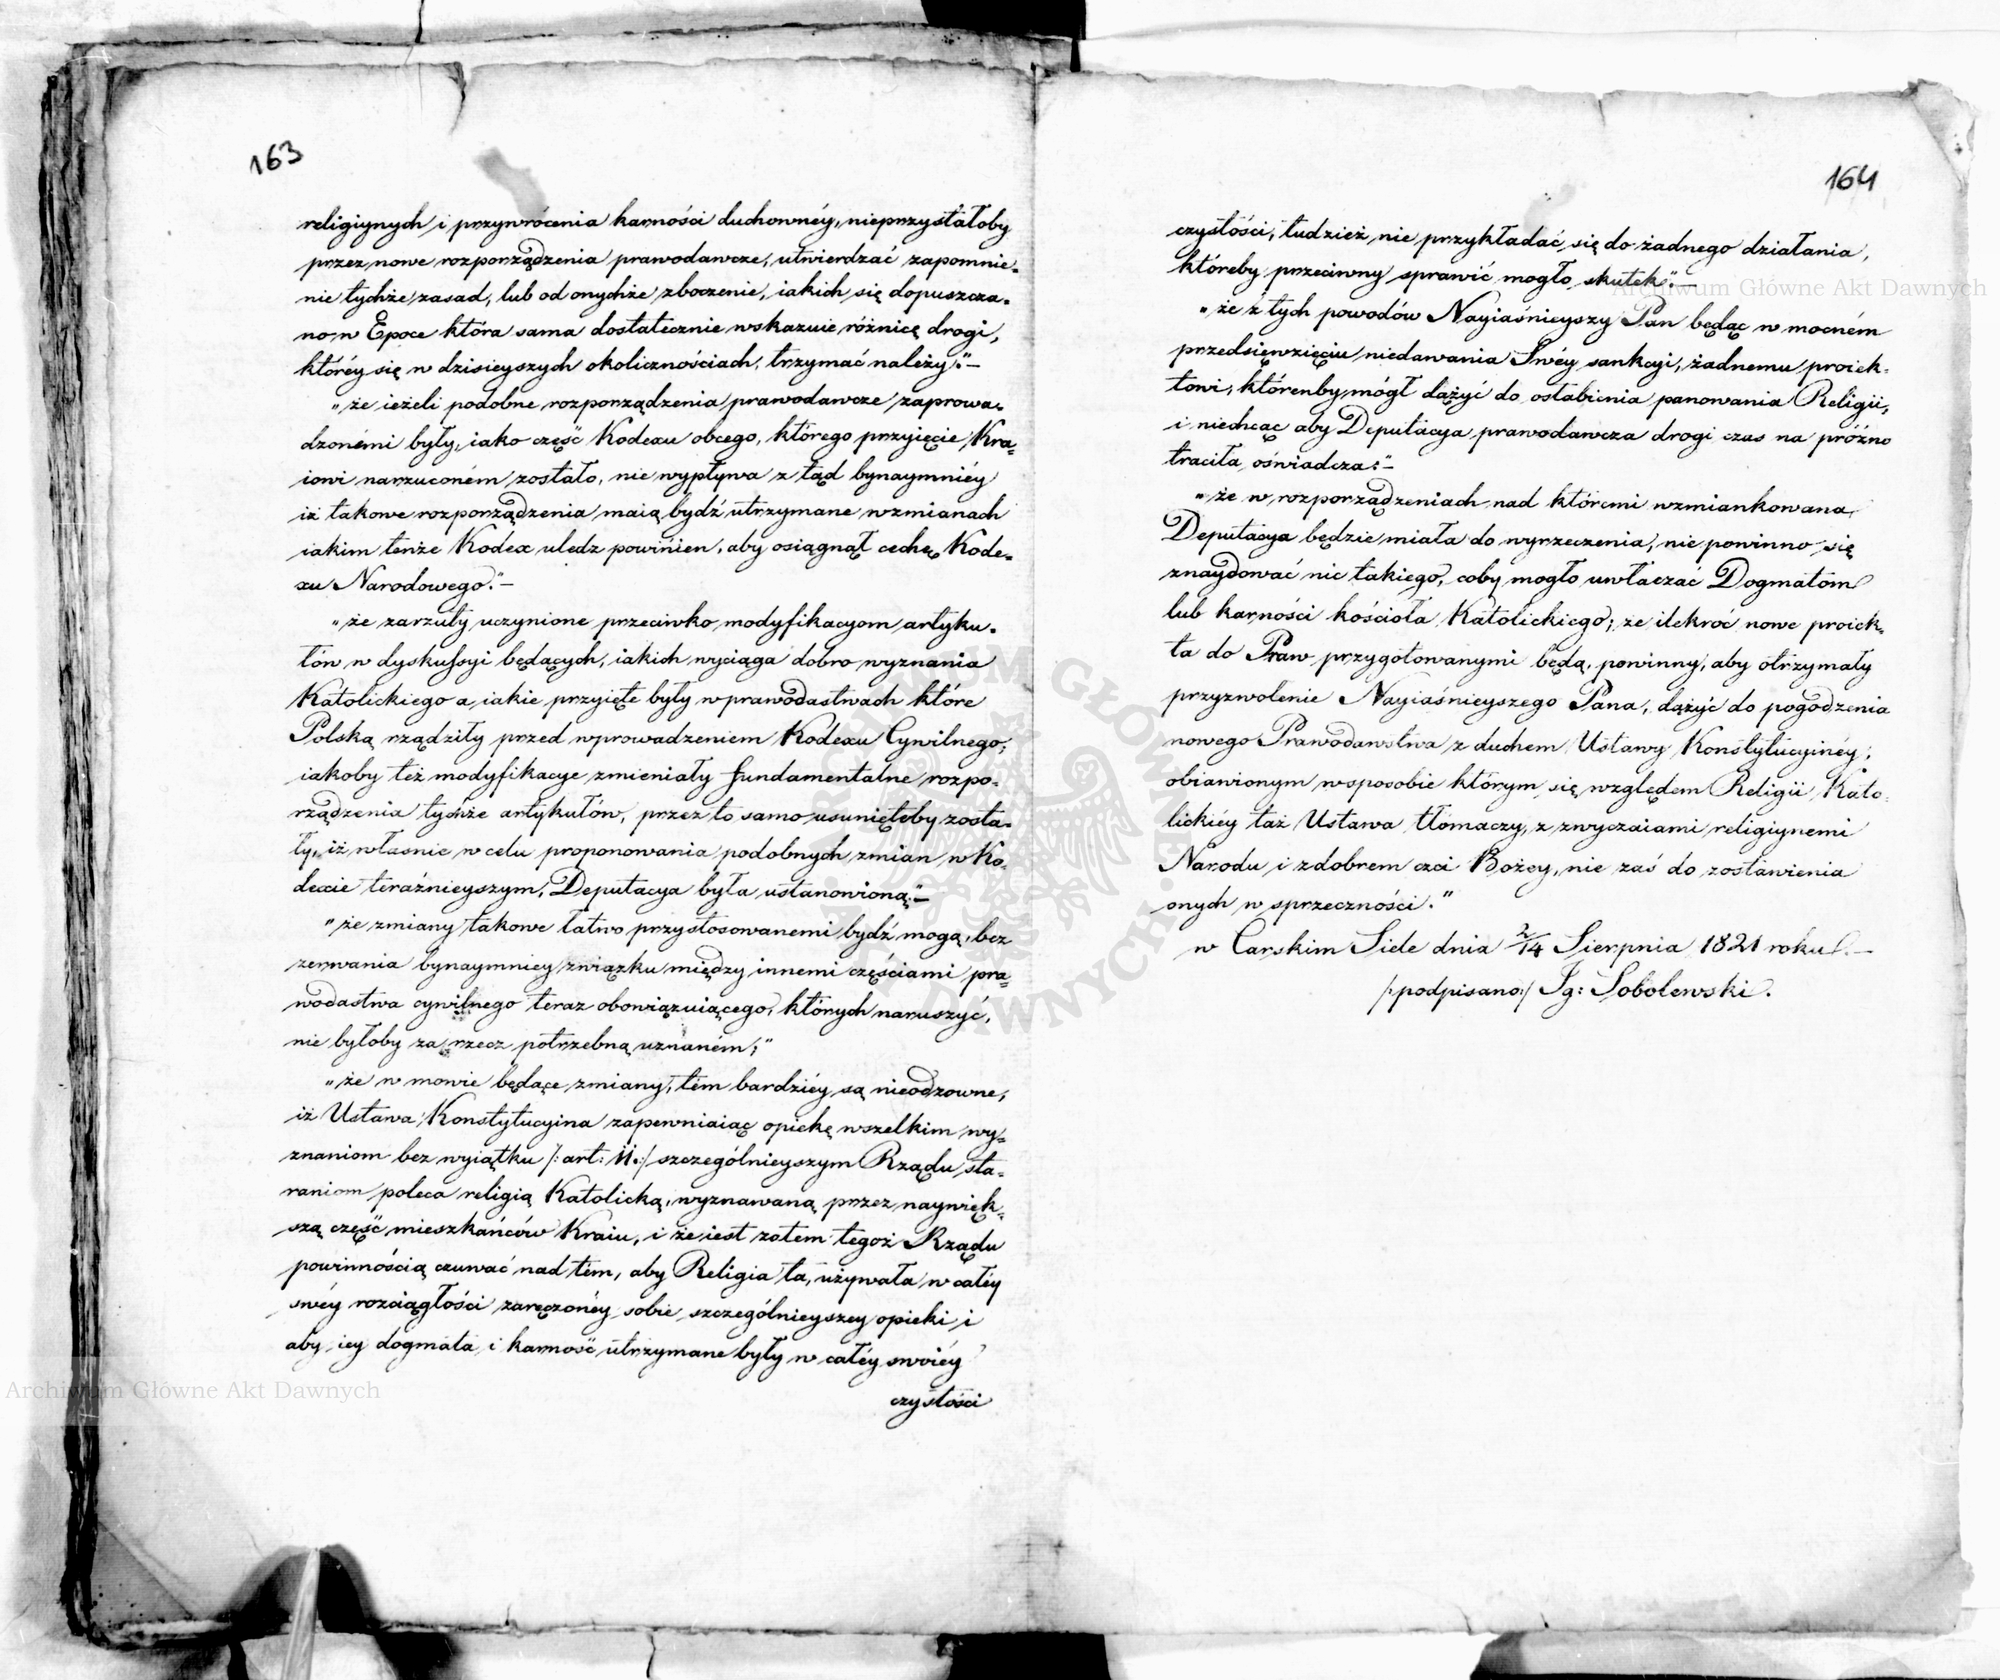 163
religiynych i przywrócenia karności duchownéy, nieprzystałoby
przez nowe rozporządzenia prawodawcze, utwierdzać zapomnie-
nie tychże zasad, lub od onychże zboczenie, iakich się dopuszcza-
no w Epoce która sama dostatecznie wskazuie różnicę drogi,
któréy się w dzisieyszych okolicznościach, trzymać należy."—
„że ieżeli podobne rozporządzenia prawodawcze zaprowa-
dzonémi były, iako część Kodexu obcego, którego przyięcie Kra-
iowi narzuconém zostało, nie wypływa z tąd bynaymniéy
iż takowe rozporządzenia maią bydź utrzymane w zmianach
iakim tenże Kodex uledz powinien, aby osiągnął cechę Kode-
xu Narodowego."—
„że zarzuty uczynione przeciwko modyfikacyom artyku-
łów w dyskussyi będących, iakich wyciąga dobro wyznania
Katolickiego a iakie przyięte były w prawodastwach które
Polską rządziły przed wprowadzeniem Kodexu Cywilnego,
iakoby też modyfikacye zmieniały fundamentalne rozpo-
rządzenia tychże artykułów, przez to samo usunięteby zosta-
ły, iż własnie w celu proponowania podobnych zmian w Ko-
dexie teraźnieyszym, Deputacya była ustanowioną."—
„że zmiany takowe łatwo przystosowanemi bydź mogą, bez
zerwania bynaymniey związku między innemi częściami pra-
wodastwa cywilnego teraz obowiązuiącego, których naruszyć,
nie byłoby za rzecz potrzebną uznaném;"
„że w mowie będące zmiany, tém bardziéy są nieodzowne,
iż Ustawa Konstytucyina zapewniaiąc opiekę wszelkim wy-
znaniom bez wyiątku /: art: 11.:/ szczególnieyszym Rządu sta-
raniom poleca religią Katolicką, wyznawaną przez naywięk-
szą część mieszkańców Kraiu, i że iest zatem tegoż Rządu
powinnością czuwać nad tém, aby Religia ta, używała w całéy
swéy rozciągłości zaręczonéy sobie szczególnieyszey opieki i
aby iey dogmata i karność utrzymane były w całéy swoiéy
czystości
164
czystości, tudzież nie przykładać się do żadnego działania,
któreby przeciwny sprawić mogło skutek."—
„że z tych powodów Nayiaśnieyszy Pan będąc w mocném
przedsięwzięciu niedawania Swéy sankcyi, żadnemu proiek-
towi, którenby mógł dążyć do osłabienia panowania Religii,
i niechcąc aby Deputacya prawodawcza drogi czas na próżno
traciła oświadcza:"—
„że w rozporządzeniach nad któremi wzmiankowana
Deputacya będzie miała do wyrzeczenia, nie powinno się
znaydować nic takiego, coby mogło uwłaczać Dogmatom
lub karności kościoła Katolickiego; że ilekroć nowe proiek-
ta do Praw przygotowanymi będą, powinny, aby otrzymały
przyzwolenie Nayiaśnieyszego Pana, dążyć do pogodzenia
nowego Prawodawstwa z duchem Ustawy Konstytucyinéy,
obiawionym w sposobie którym się względem Religii Kato-
lickiéy taż Ustawa tłómaczy, z zwyczaiami religiynemi
Narodu i z dobrem czci Bożey, nie zaś do zostawienia
onych w sprzeczności."
w Carskim Siele dnia 2/14 Sierpnia 1821 roku.—
/:podpisano:/ Ig: Sobolewski.
Archiwum Główne Akt Dawnych
Archiwum Główne Akt Dawnych
ARCHIWUM GŁÓWNE AKT DAWNYCH